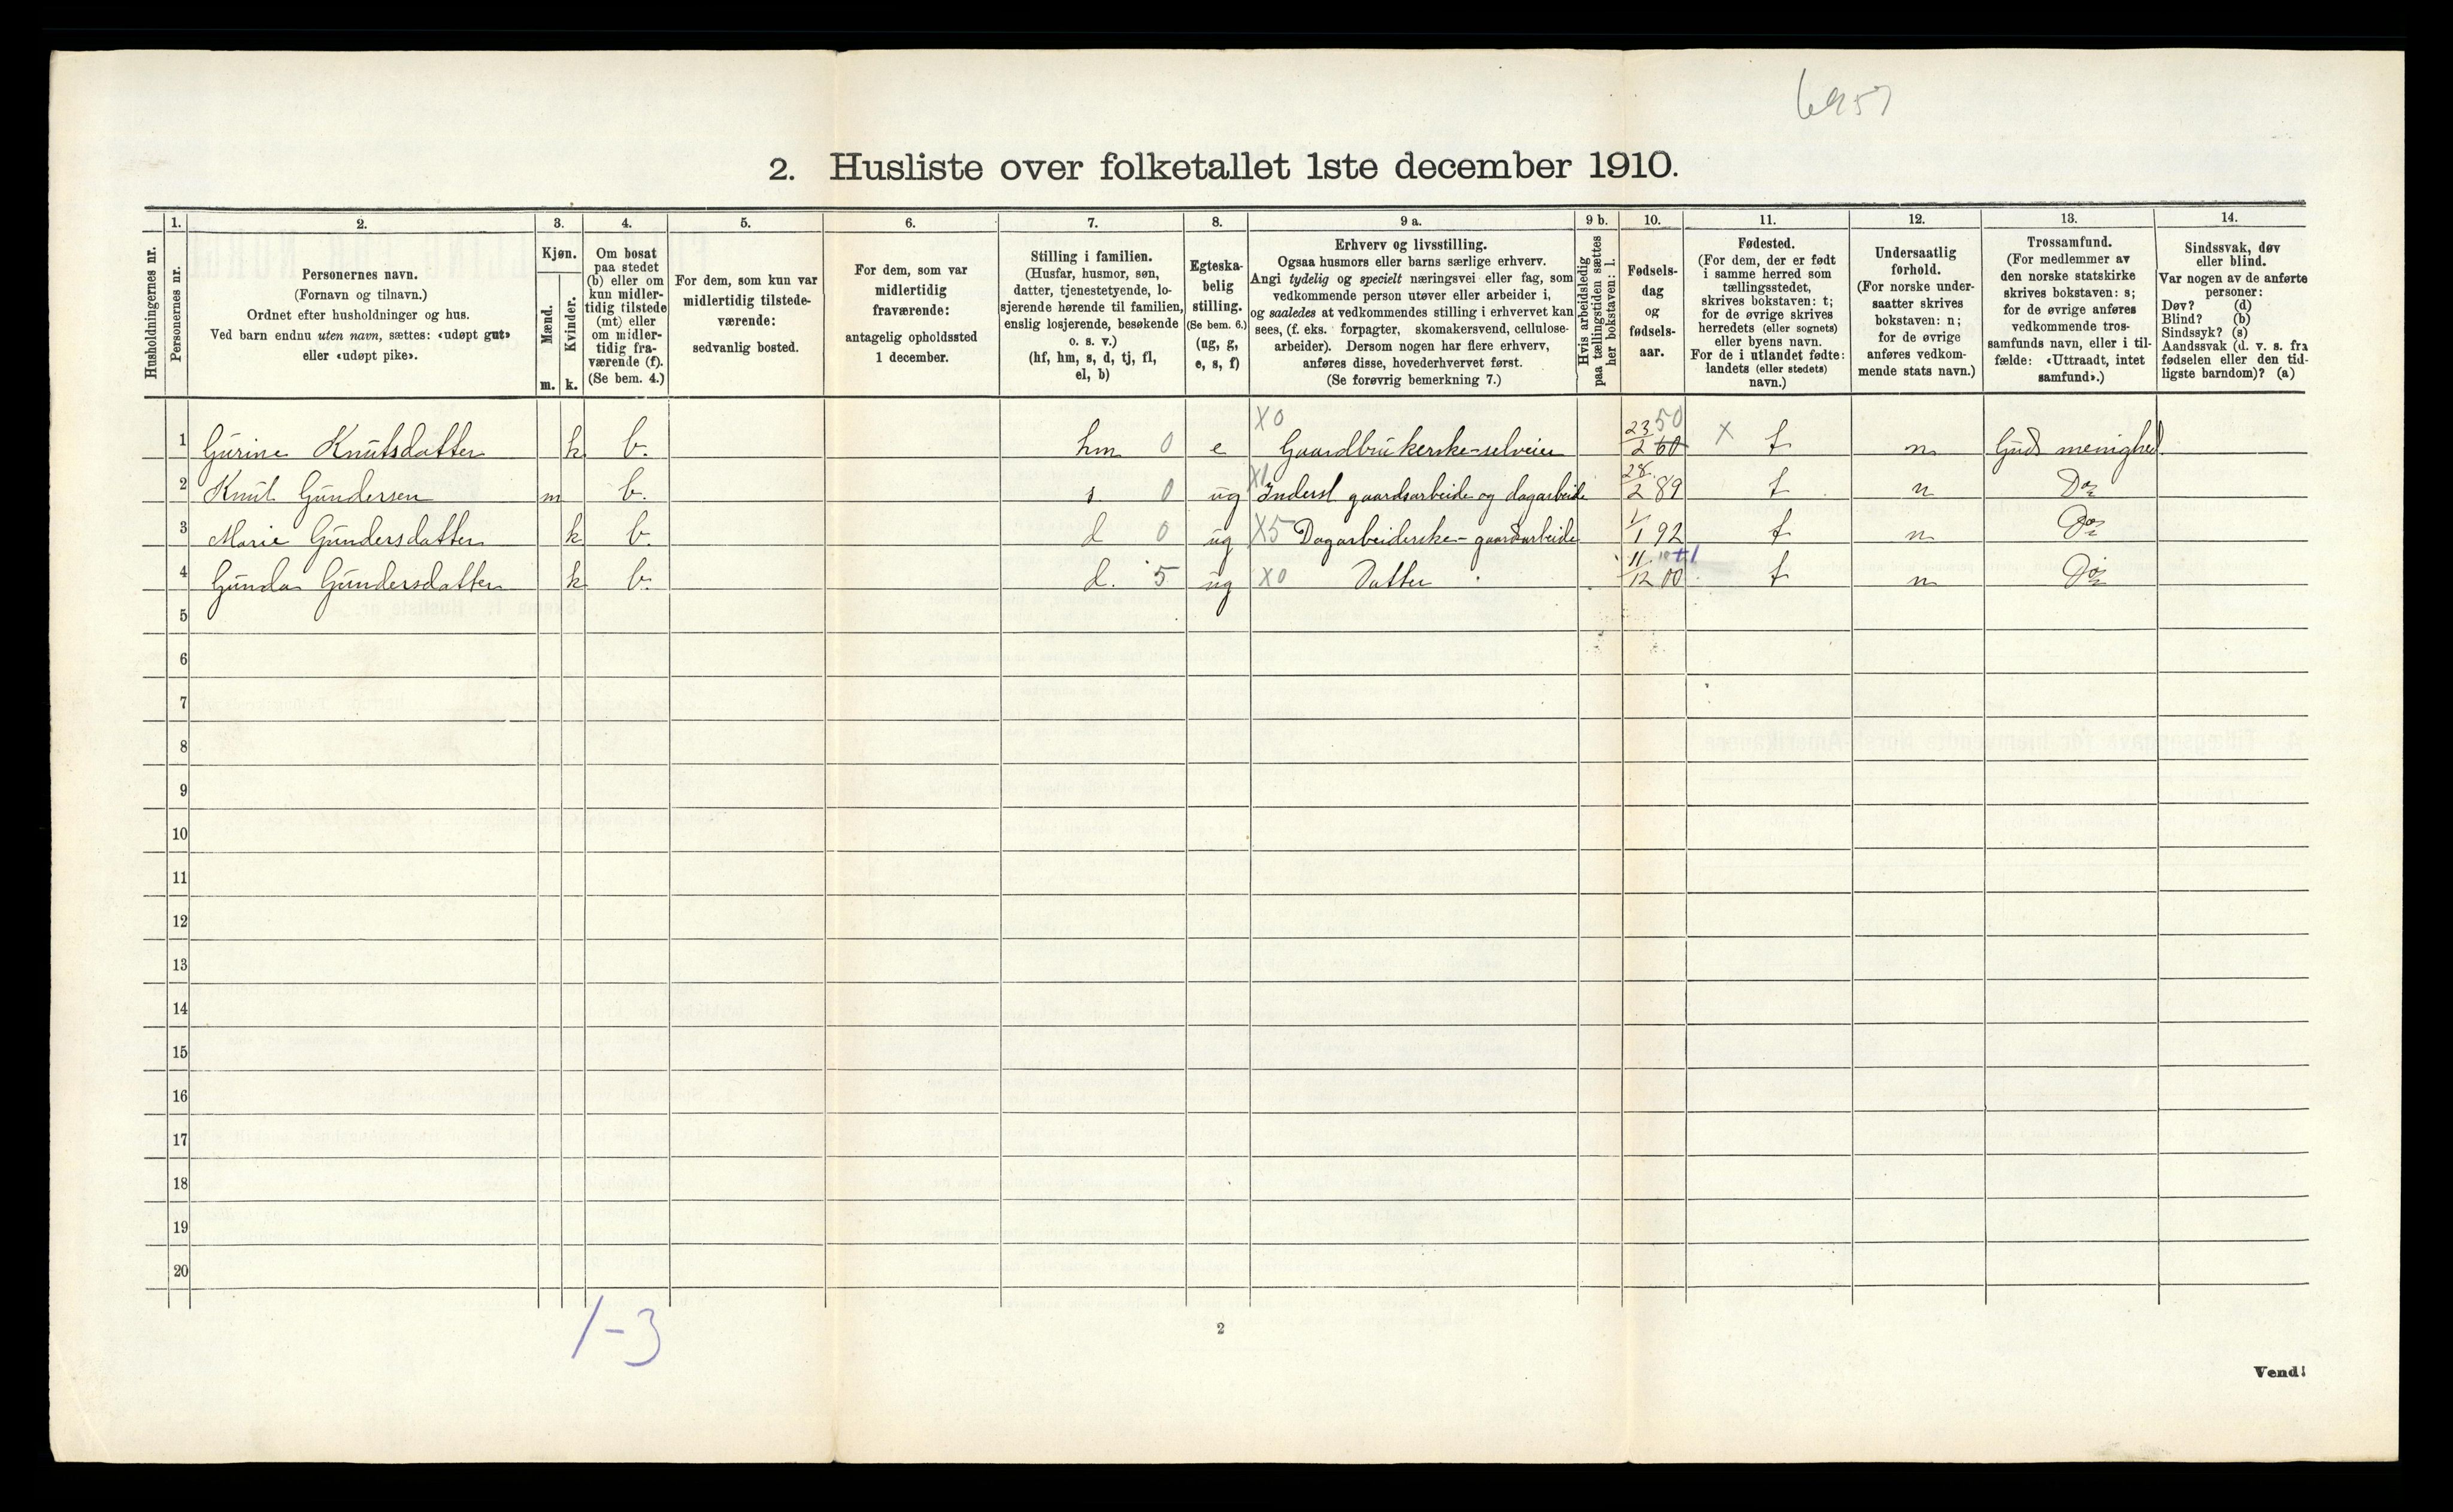 6957
2. Husliste over folketallet 1ste december 1910.
Husholdningernes nr.
1.
Personernes nr.
2.
Personernes navn.
(Fornavn og tilnavn.)
Ordnet efter husholdninger og hus.
Ved barn endnu uten navn, sættes: «udøpt gut»
eller «udøpt pike».
3.
Kjøn.
Mænd.
m.
Kvinder.
k.
4.
Om bosat
paa stedet
(b) eller om
kun midler-
tidig tilstede
(mt) eller
om midler-
tidig fra-
værende (f).
(Se bem. 4.)
5.
For dem, som kun var
midlertidig tilstede-
værende:
sedvanlig bosted.
6.
For dem, som var
midlertidig
fraværende:
antagelig opholdssted
1 december.
7.
Stilling i familien.
(Husfar, husmor, søn,
datter, tjenestetyende, lo-
sjerende hørende til familien,
enslig losjerende, besøkende
o. s. v.)
(hf, hm, s, d, tj, fl,
el, b)
8.
Egteska-
belig
stilling.
(Se bem. 6.)
(ug, g,
e, s, f)
9 a.
Erhverv og livsstilling.
Ogsaa husmors eller barns særlige erhverv.
Angi tydelig og specielt næringsvei eller fag, som
vedkommende person utøver eller arbeider i,
og saaledes at vedkommendes stilling i erhvervet kan
sees, (f. eks. forpagter, skomakersvend, cellulose-
arbeider). Dersom nogen har flere erhverv,
anføres disse, hovederhvervet først.
(Se forøvrig bemerkning 7.)
9 b.
Hvis arbeidsledig
paa tællingstiden sættes
her bokstaven: l.
10.
Fødsels-
dag
og
fødsels-
aar.
11.
Fødested.
(For dem, der er født
i samme herred som
tællingsstedet,
skrives bokstaven: t;
for de øvrige skrives
herredets (eller sognets)
eller byens navn.
For de i utlandet fødte:
landets (eller stedets)
navn.)
12.
Undersaatlig
forhold.
(For norske under-
saatter skrives
bokstaven: n;
for de øvrige
anføres vedkom-
mende stats navn.)
13.
Trossamfund.
(For medlemmer av
den norske statskirke
skrives bokstaven: s;
for de øvrige anføres
vedkommende tros-
samfunds navn, eller i til-
fælde: «Uttraadt, intet
samfund».)
14.
Sindssvak, døv
eller blind.
Var nogen av de anførte
personer:
Døv? (d)
Blind? (b)
Sindssyk? (s)
Aandssvak (d. v. s. fra
fødselen eller den tid-
ligste barndom)? (a)
1 Gurine Knutsdatter k b. hm 0 e X0 Gaardbrukerske-selveier 23/2 60 50 X t n Guds menighed
2 Knut Gundersen m b. s 0 ug X1 Inderst gaardsarbeide og dagarbeide 28/2 89 t n Do
3 Marie Gundersdatter k b. d 0 ug X5 Dagarbeiderske-gaardsarbeide 1/1 92 t n Do
4 Gunda Gundersdatter k b. d. 5 ug X0 Datter 11/12 00 t n Do
5
6
7
8
9
10
11
12
13
14
15
16
17
18
19
20
1-3
2
Vend!